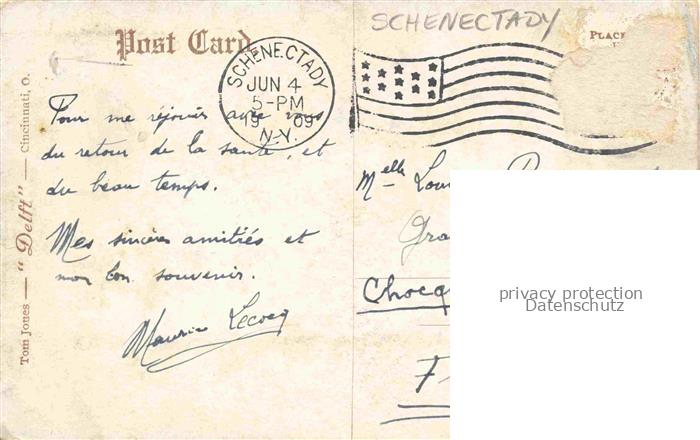 SCHENECTADY
Post Card
PLACE
SCHENECTADY
JUN 4
5-PM
1909
N.Y.
Pour me réjouir avec vous
du retour de la santé, et
du beau temps.
Mes sincères amitiés et
mon bon souvenir.
Maurice Lecocq
Melle Lou
Gra
Chocq
F
privacy protection
Datenschutz
Tom Jones — "Delft" — Cincinnati, O.